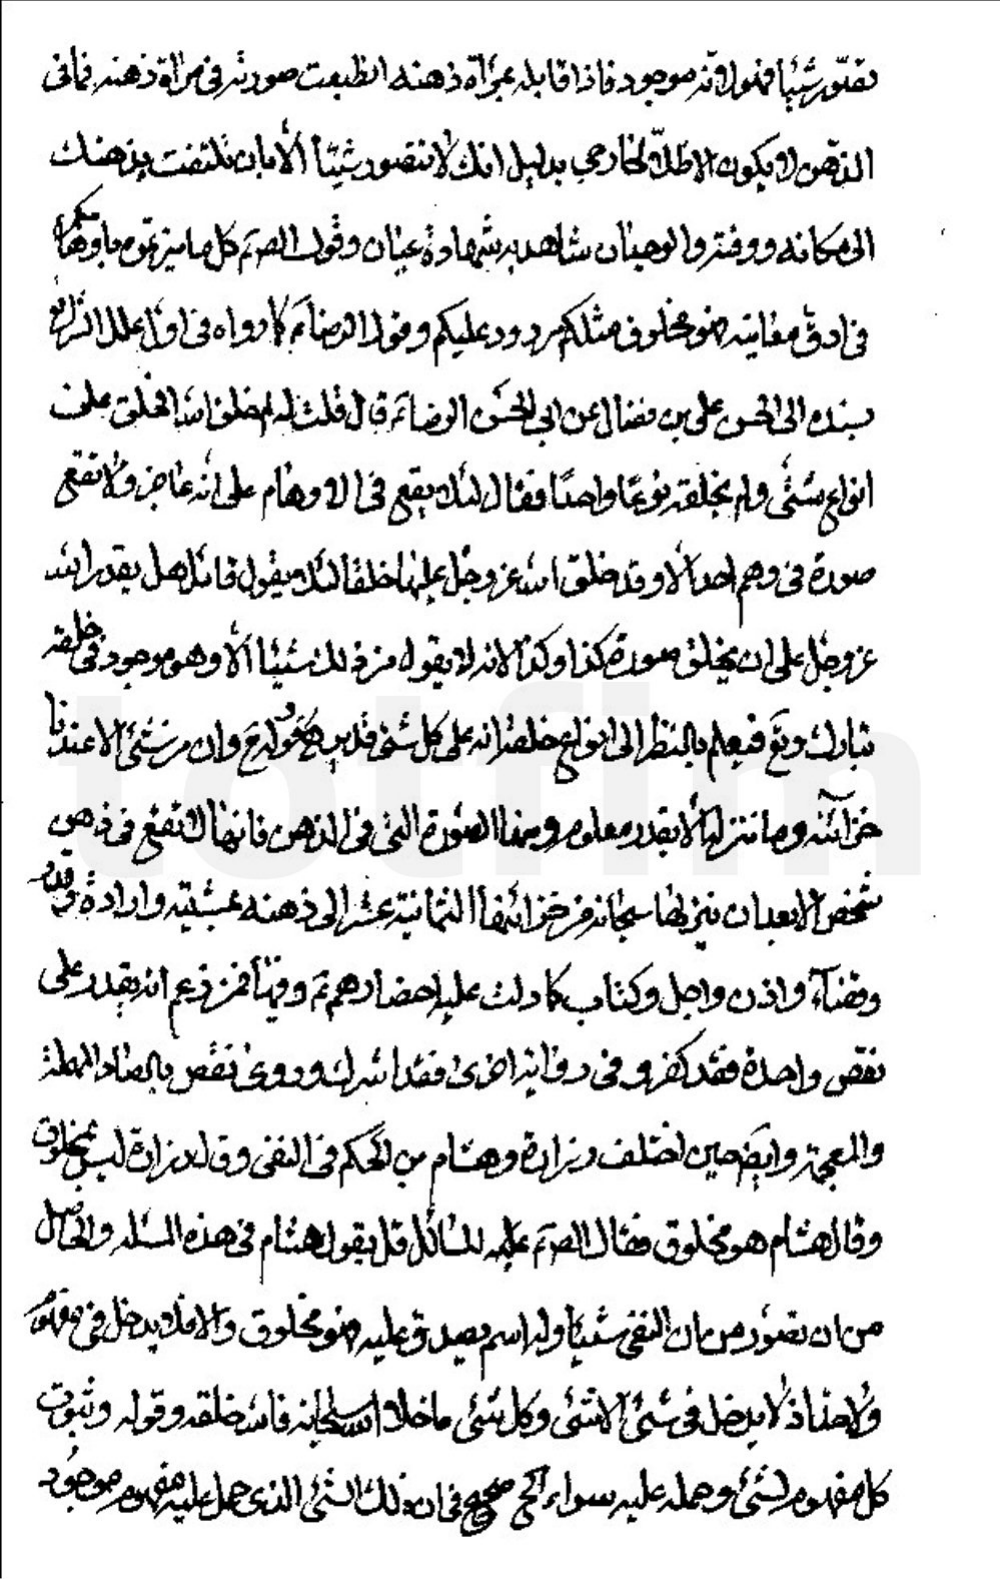 تتصور شيئا فهو لانه موجود فاذا قابله بمرآة ذهنه انطبعت صورته في مرآة ذهنه فما في
الذهن لا يكون الا ظلا لخارجي بدليل انك لا تتصور شيئا الا بان تلتفت بذهنك
الى مكانه ووقته والوجدان شاهد به شهادة عيان وقول الصم كل ما ميزتموه باوهامكم
في ادق معانيه فهو مخلوق مثلكم مردود عليكم وقول الرضا ع كما رواه في اول علل الشرايع
بسنده الى الحسن علي بن فضال عن ابي الحسن الرضا ع قال قلت له لم خلق الله الخلق على
انواع شتى ولم يخلقه نوعا واحدا فقال لئلا يقع في الاوهام على انه عاجز ولا تقع
صورة في وهم احد الا وقد خلق الله عز وجل عليها خلقا لئلا يقول قائل هل يقدر الله
عز وجل على ان يخلق صورة كذا وكذا لانه لا يقول من ذلك شيئا الا وهو موجود في خلقه
تبارك وتع فيعلم بالنظر الى انواع خلقه انه على كل شئ قدير وكقوله تع وان من شئ الا عندنا
خزائنه وما ننزله الا بقدر معلوم ومنها الصورة التي في الذهن فانها لا تقع في ذهن
شخص الا بعد ان ينزلها سبحانه من خزائنها الثمانية عشر الى ذهنه بمشيته وارادة وقدر
وقضاء واذن واجل وكتاب كما دلت عليه اخبارهم ع وفيها فمن زعم انه يقدر على
نقص واحدة فقد كفر وفي رواية اخرى فقد اشرك وروى نقص بالصاد المهملة
والمعجمة وايضا حين اختلف زرارة وهشام بن الحكم في النفي وقال زرارة ليس بمخلوق
وقال هشام هو مخلوق فقال الصم عليه للسائل قل بقول هشام في هذه المسئلة والحاصل
من ان تصور من النفي شيئا وله اسم يصدق عليه فهو مخلوق والا فلا يدخل في مفهوم
ولا هذا اذ لا يدخل في شئ الا شئ وكل شئ ما خلا الله سبحانه فالله خلقه وقوله وثبوت
كل مفهوم لشئ وحمله عليه سواء الخ صحيح في ان ذلك الشئ الذي حمل عليه مفهوم موجود